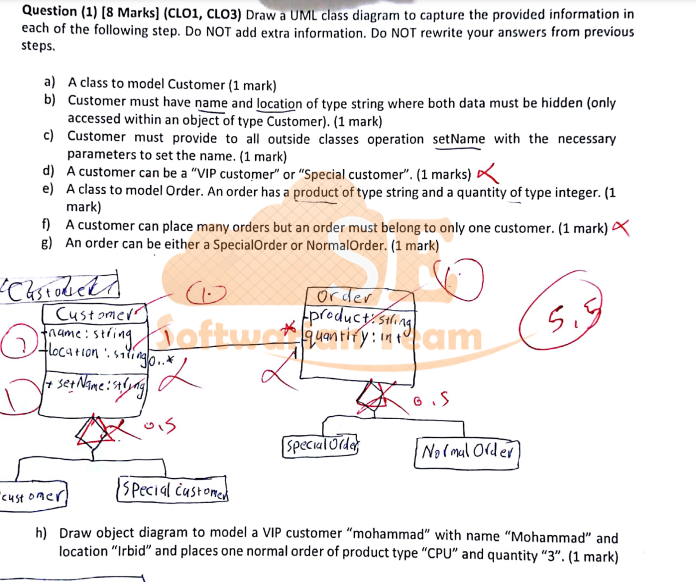 Question (1) [8 Marks] (CLO1, CLO3) Draw a UML class diagram to capture the provided information in
each of the following step. Do NOT add extra information. Do NOT rewrite your answers from previous
steps.
a) A class to model Customer (1 mark)
b) Customer must have name and location of type string where both data must be hidden (only
accessed within an object of type Customer). (1 mark)
c) Customer must provide to all outside classes operation setName with the necessary
parameters to set the name. (1 mark)
d) A customer can be a "VIP customer" or "Special customer". (1 marks)
e) A class to model Order. An order has a product of type string and a quantity of type integer. (1
mark)
f) A customer can place many orders but an order must belong to only one customer. (1 mark)
g) An order can be either a SpecialOrder or NormalOrder. (1 mark)
SE
Software Team
Customer
1
Order
1
5,5
-product: string
-quantity: int
1
-name: string
-location: string
1
0..*
*
1
+ setName: string
0.5
0.5
Special Order
Normal Order
customer
Special customer
h) Draw object diagram to model a VIP customer "mohammad" with name "Mohammad" and
location "Irbid" and places one normal order of product type "CPU" and quantity "3". (1 mark)